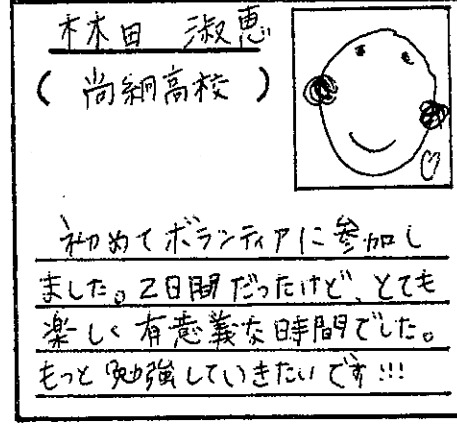 林田 淑恵
(尚絅高校)
初めてボランティアに参加し
ました。2日間だったけど、とても
楽しく有意義な時間でした。
もっと勉強していきたいです!!!